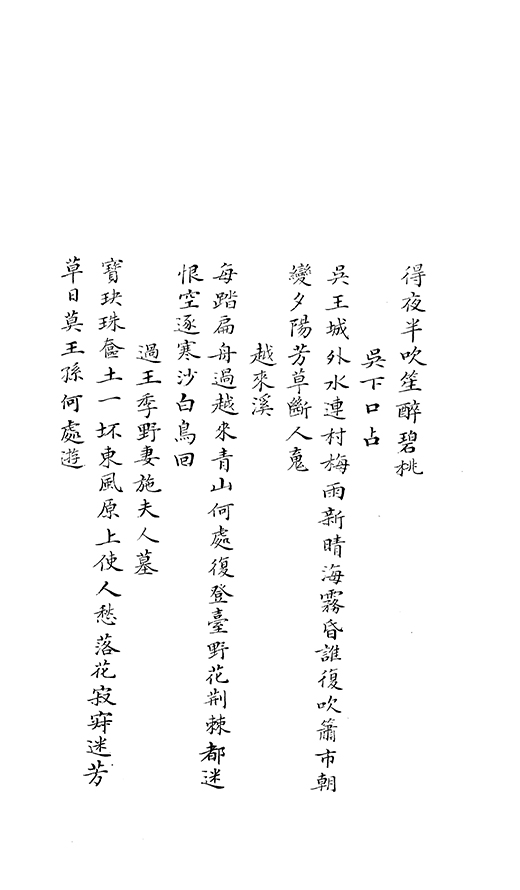 得夜半吹笙醉碧桃
吳下口占
吳王城外水連村梅雨新晴海霧昏誰復吹簫市朝
變夕陽芳草斷人䰟
越來溪
每踏扁舟過越來青山何處復登臺野花荆棘都迷
恨空逐寒沙白鳥回
過王季野妻施夫人墓
寶玦珠奩土一坏東風原上使人愁落花寂寞迷芳
草日莫王孫何處遊